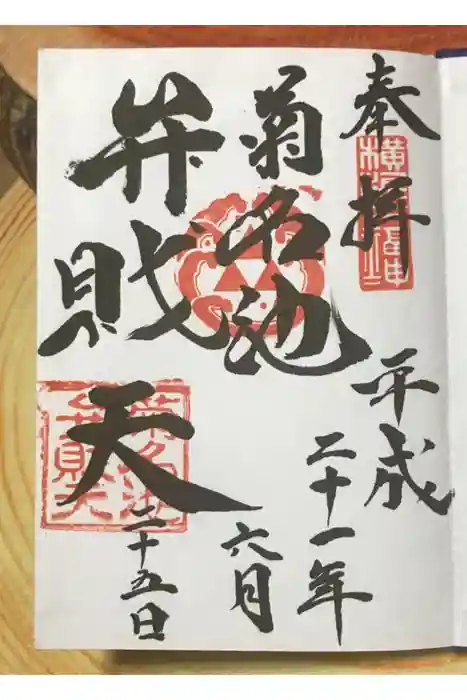 奉拝
横浜七福神
平成
二十一年
六月
二十五日
菊名池
弁財天
菊名池
弁財天